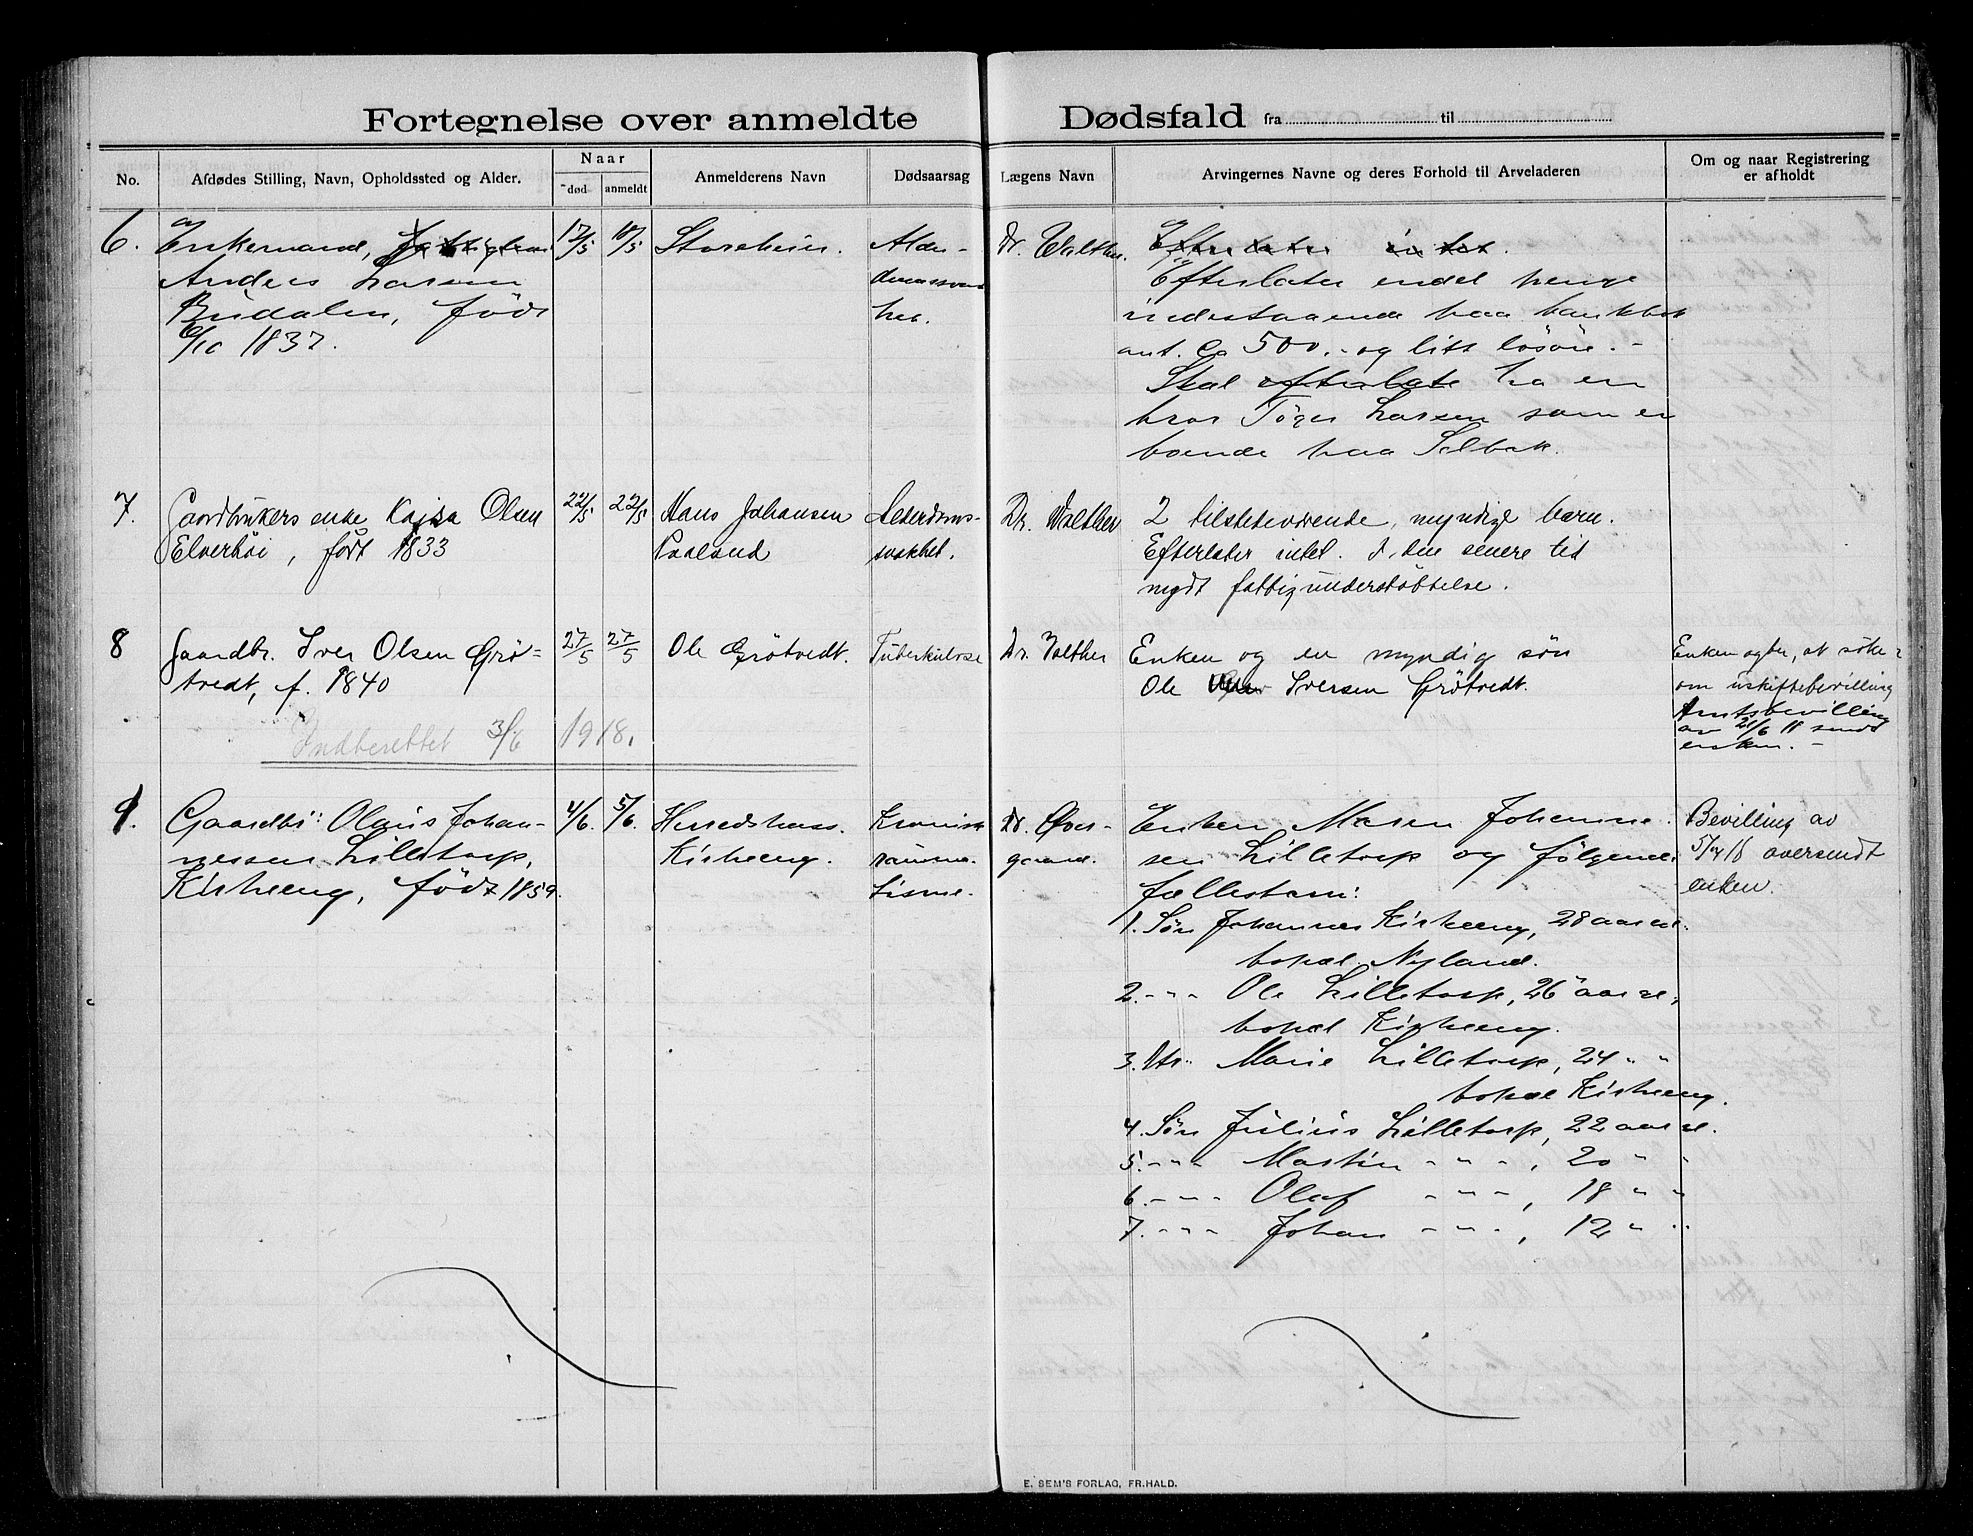 Fortegnelse over anmeldte Dødsfald fra til
No.
Afdødes Stilling, Navn, Opholdssted og Alder.
Naar
død
anmeldt
Anmelderens Navn
Dødsaarsag
Lægens Navn
Arvingernes Navne og deres Forhold til Arveladeren
Om og naar Registrering
er afholdt
6.
Enkemand,
Anders Larsen
Budalen, född
6/10 1837.
17/5
Storeheier.
Alder-
domssvak
het.
Dr. Walther.
Efterlater intet.
Efterlater endel penge
indestaaende paa bankbok
ant. ca 500.- og litt lösöre. -
Skal efterlate ha en
bror Töger Larsen som er
boende paa Selbak.
7.
Gaardbrukers enke Kajsa Olsen
Elverhöi, født 1833
22/5
22/5
Hans Johansen
Paaland
Alderdoms-
svakhet.
Dr. Walther
2 tilstedeværende, myndige barn.
Efterlater intet. I den senere tid
nydt fattigunderstöttelse.
8
Gaardbr. Iver Olsen Grö-
tvedt, f. 1840
27/5
27/5
Ole Grötvedt.
Tuberkulose
Dr. Walther
Enken og en myndig sön
Ole Iversen Grötvedt.
Enken agter, at söke
om uskiftebevilling
Amtsbevilling
av 21/6 18 sendt
enken. -
Indberettet 3/6 1918.
9.
Gaardbr: Olaus Johan-
nessen Lilletorp,
Kirkeeng, född 1859.
4/6.
5/6.
Herredskass.
Kirkeeng.
Kronisk
reuma-
tisme.
Dr. Över-
gaard.
Enken Maren Johannes-
sen Lilletorp og følgende
fællesbarn:
1. Sön Johannes Kirkeeng, 28 aar gl.
bopæl Nyland.
2. -"- Ole Lilletorp, 26 aar gl,
bopæl Kirkeeng.
3. Dtr. Marie Lilletorp, 24 " "
bopæl Kirkeeng.
4. Sön Julius Lilletorp, 22 aar gl.
5. -"- Martin -"-, 20 " "
6. -"- Olaf -"-, 18 " "
7. -"- Johan -"-, 12 " "
Bevilling av
5/7 18 oversendt
enken.
E. SEM'S FORLAG, FR.HALD.